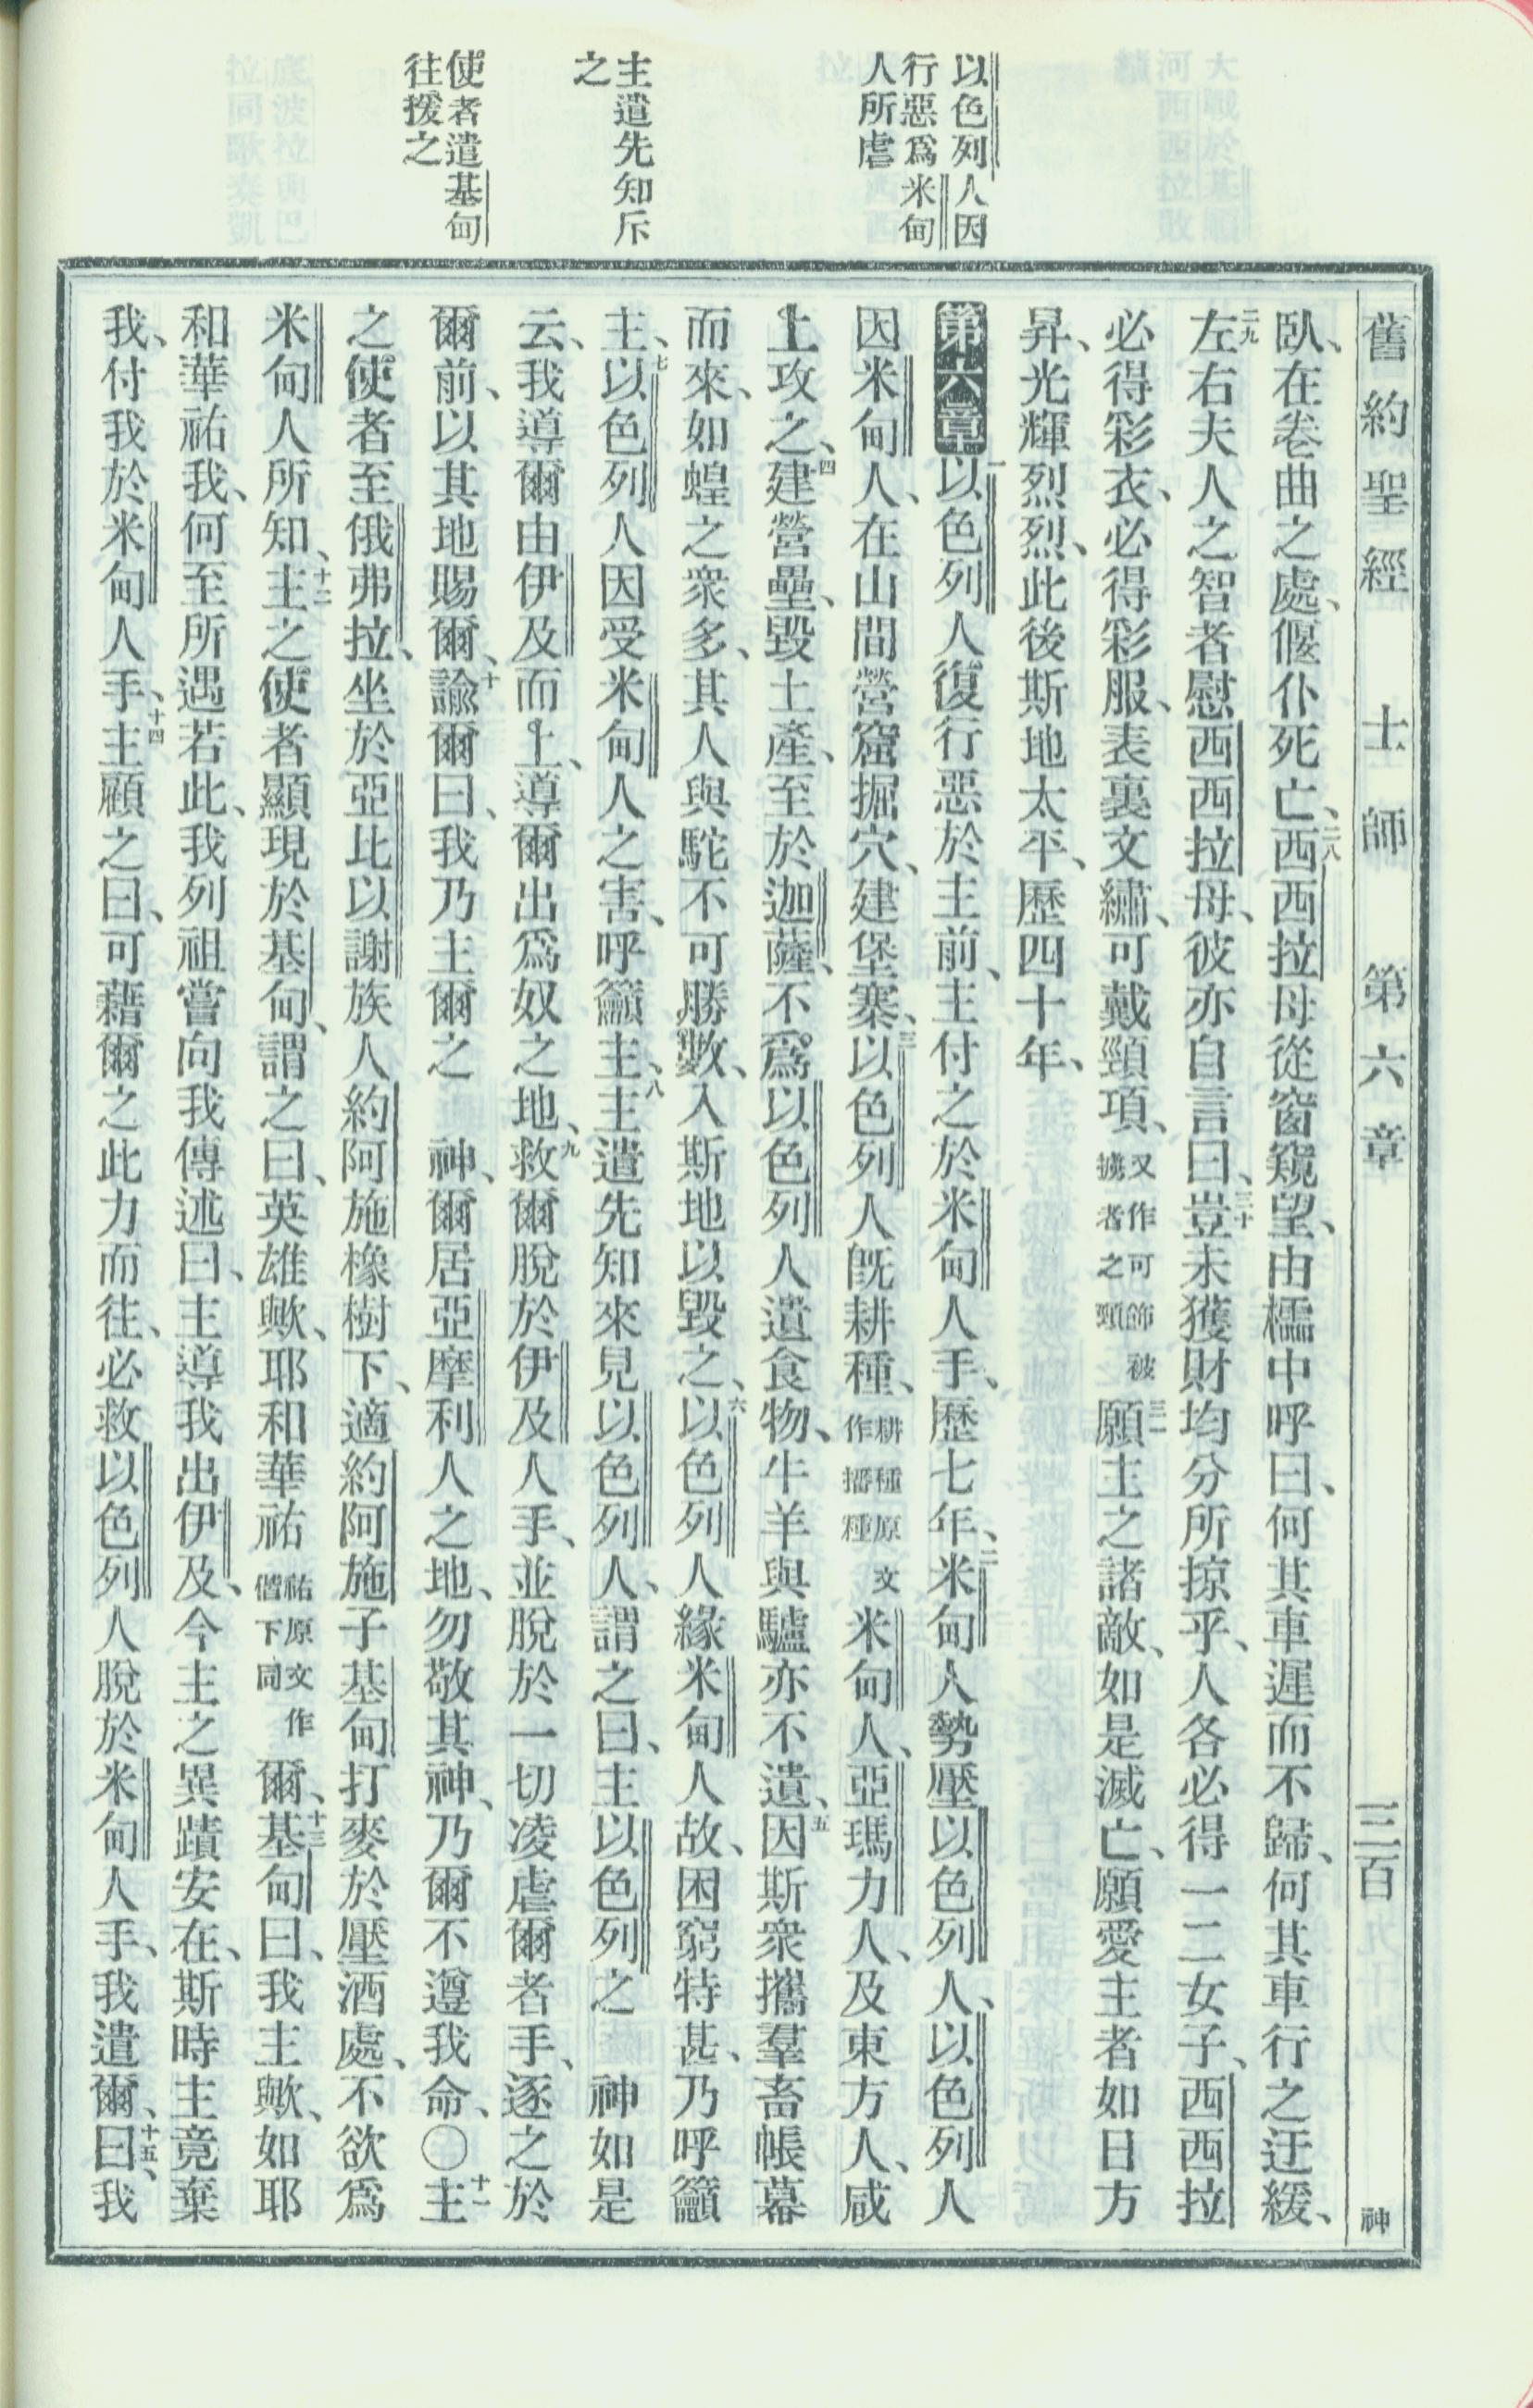 舊約聖經 士師 第六章 三百 神
以色列人因
行惡爲米甸
人所虐
主遣先知斥
之
使者遣基甸
往援之
臥、在卷曲之處、偃仆死亡、二八西西拉母從窗窺望、由櫺中呼曰、何其車遲而不歸、何其車行之迂緩、
二九左右夫人之智者慰西西拉母、彼亦自言曰、三十豈未獲財均分所掠乎、人各必得一二女子、西西拉
必得彩衣、必得彩服、表裏文繡、可戴頸項、又作可飾被擄者之頸三一願主之諸敵、如是滅亡、願愛主者如日方
昇、光輝烈烈、此後斯地太平、歷四十年、
第六章一以色列人復行惡於主前、主付之於米甸人手、歷七年、二米甸人勢壓以色列人、以色列人
因米甸人、在山間營窟掘穴、建堡寨、三以色列人旣耕種、耕種原文作播種米甸人、亞瑪力人、及東方人、咸
上攻之、四建營壘、毀土產、至於迦薩、不爲以色列人遺食物、牛羊與驢亦不遺、五因斯衆攜羣畜帳幕
而來、如蝗之衆多、其人與駝不可勝數、入斯地以毀之、六以色列人緣米甸人故、困窮特甚、乃呼籲
主、七以色列人因受米甸人之害、呼籲主、八主遣先知來見以色列人、謂之曰、主以色列之 神如是
云、我導爾由伊及而上、導爾出爲奴之地、九救爾脫於伊及人手、並脫於一切凌虐爾者手、逐之於
爾前、以其地賜爾、十諭爾曰、我乃主爾之 神、爾居亞摩利人之地、勿敬其神、乃爾不遵我命、〇十一主
之使者至俄弗拉、坐於亞比以謝族人約阿施橡樹下、適約阿施子基甸打麥於壓酒處、不欲爲
米甸人所知、十二主之使者顯現於基甸、謂之曰、英雄歟、耶和華祐祐原文作偕下同爾、十三基甸曰、我主歟、如耶
和華祐我、何至所遇若此、我列祖嘗向我傳述曰、主導我出伊及、今主之異蹟安在、斯時主竟棄
我、付我於米甸人手、十四主顧之曰、可藉爾之此力而往、必救以色列人脫於米甸人手、我遣爾、十五曰、我